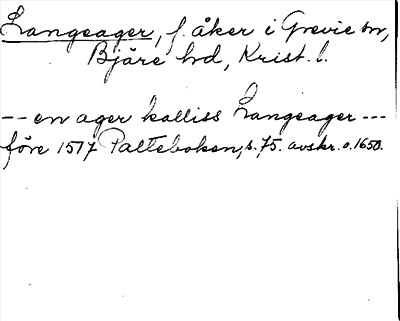 Langeager, f. åker i Grevie sn,
Bjäre hd, Krist. l.
-- en ager kalliss Langeager ---
före 1517 Palteboken, s. 75. avskr. o. 1650.